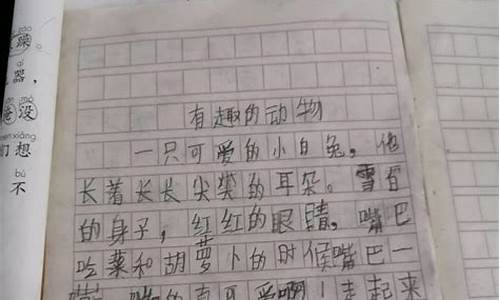 躁
器，
爸没
们想
bú
不
有趣的动物
一只可爱的小白兔，他
长着长长尖尖的耳朵。雪白
的身子，红红的眼睛，嘴巴
吃菜和胡萝卜的时候嘴巴一
的真可爱啊！走起来